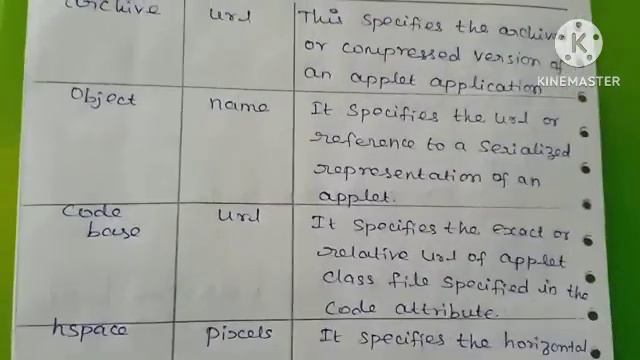 archive url This specifies the archive
or compressed version of
an applet application
KINEMASTER
Object name It specifies the url or
reference to a serialized
representation of an
applet.
Code url It specifies the exact or
base relative url of applet
class file specified in the
Code attribute.
hspace pixels It specifies the horizontal